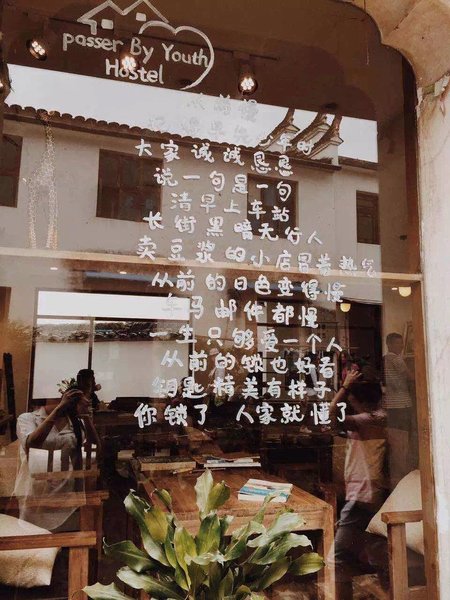 passer By Youth
Hostel
从前慢
年时
大家诚诚恳恳
说一句是一句
清早上车站
长街黑暗无行人
卖豆浆的小店冒着热气
从前的日色变得慢
车马邮件都慢
一生只够爱一个人
从前的锁也好看
钥匙精美有样子
你锁了 人家就懂了